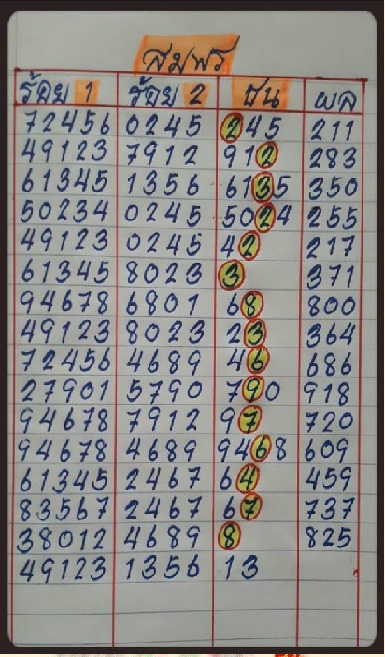 สมพร
ร้อย 1 ร้อย 2 ชน ผล
72456 0245 245 211
49123 7912 912 283
61345 1356 6135 350
50234 0245 5024 255
49123 0245 42 217
61345 8023 3 371
94678 6801 68 800
49123 8023 23 364
72456 4689 46 686
27901 5790 790 918
94678 7912 97 720
94678 4689 9468 609
61345 2467 64 459
83567 2467 67 737
38012 4689 8 825
49123 1356 13